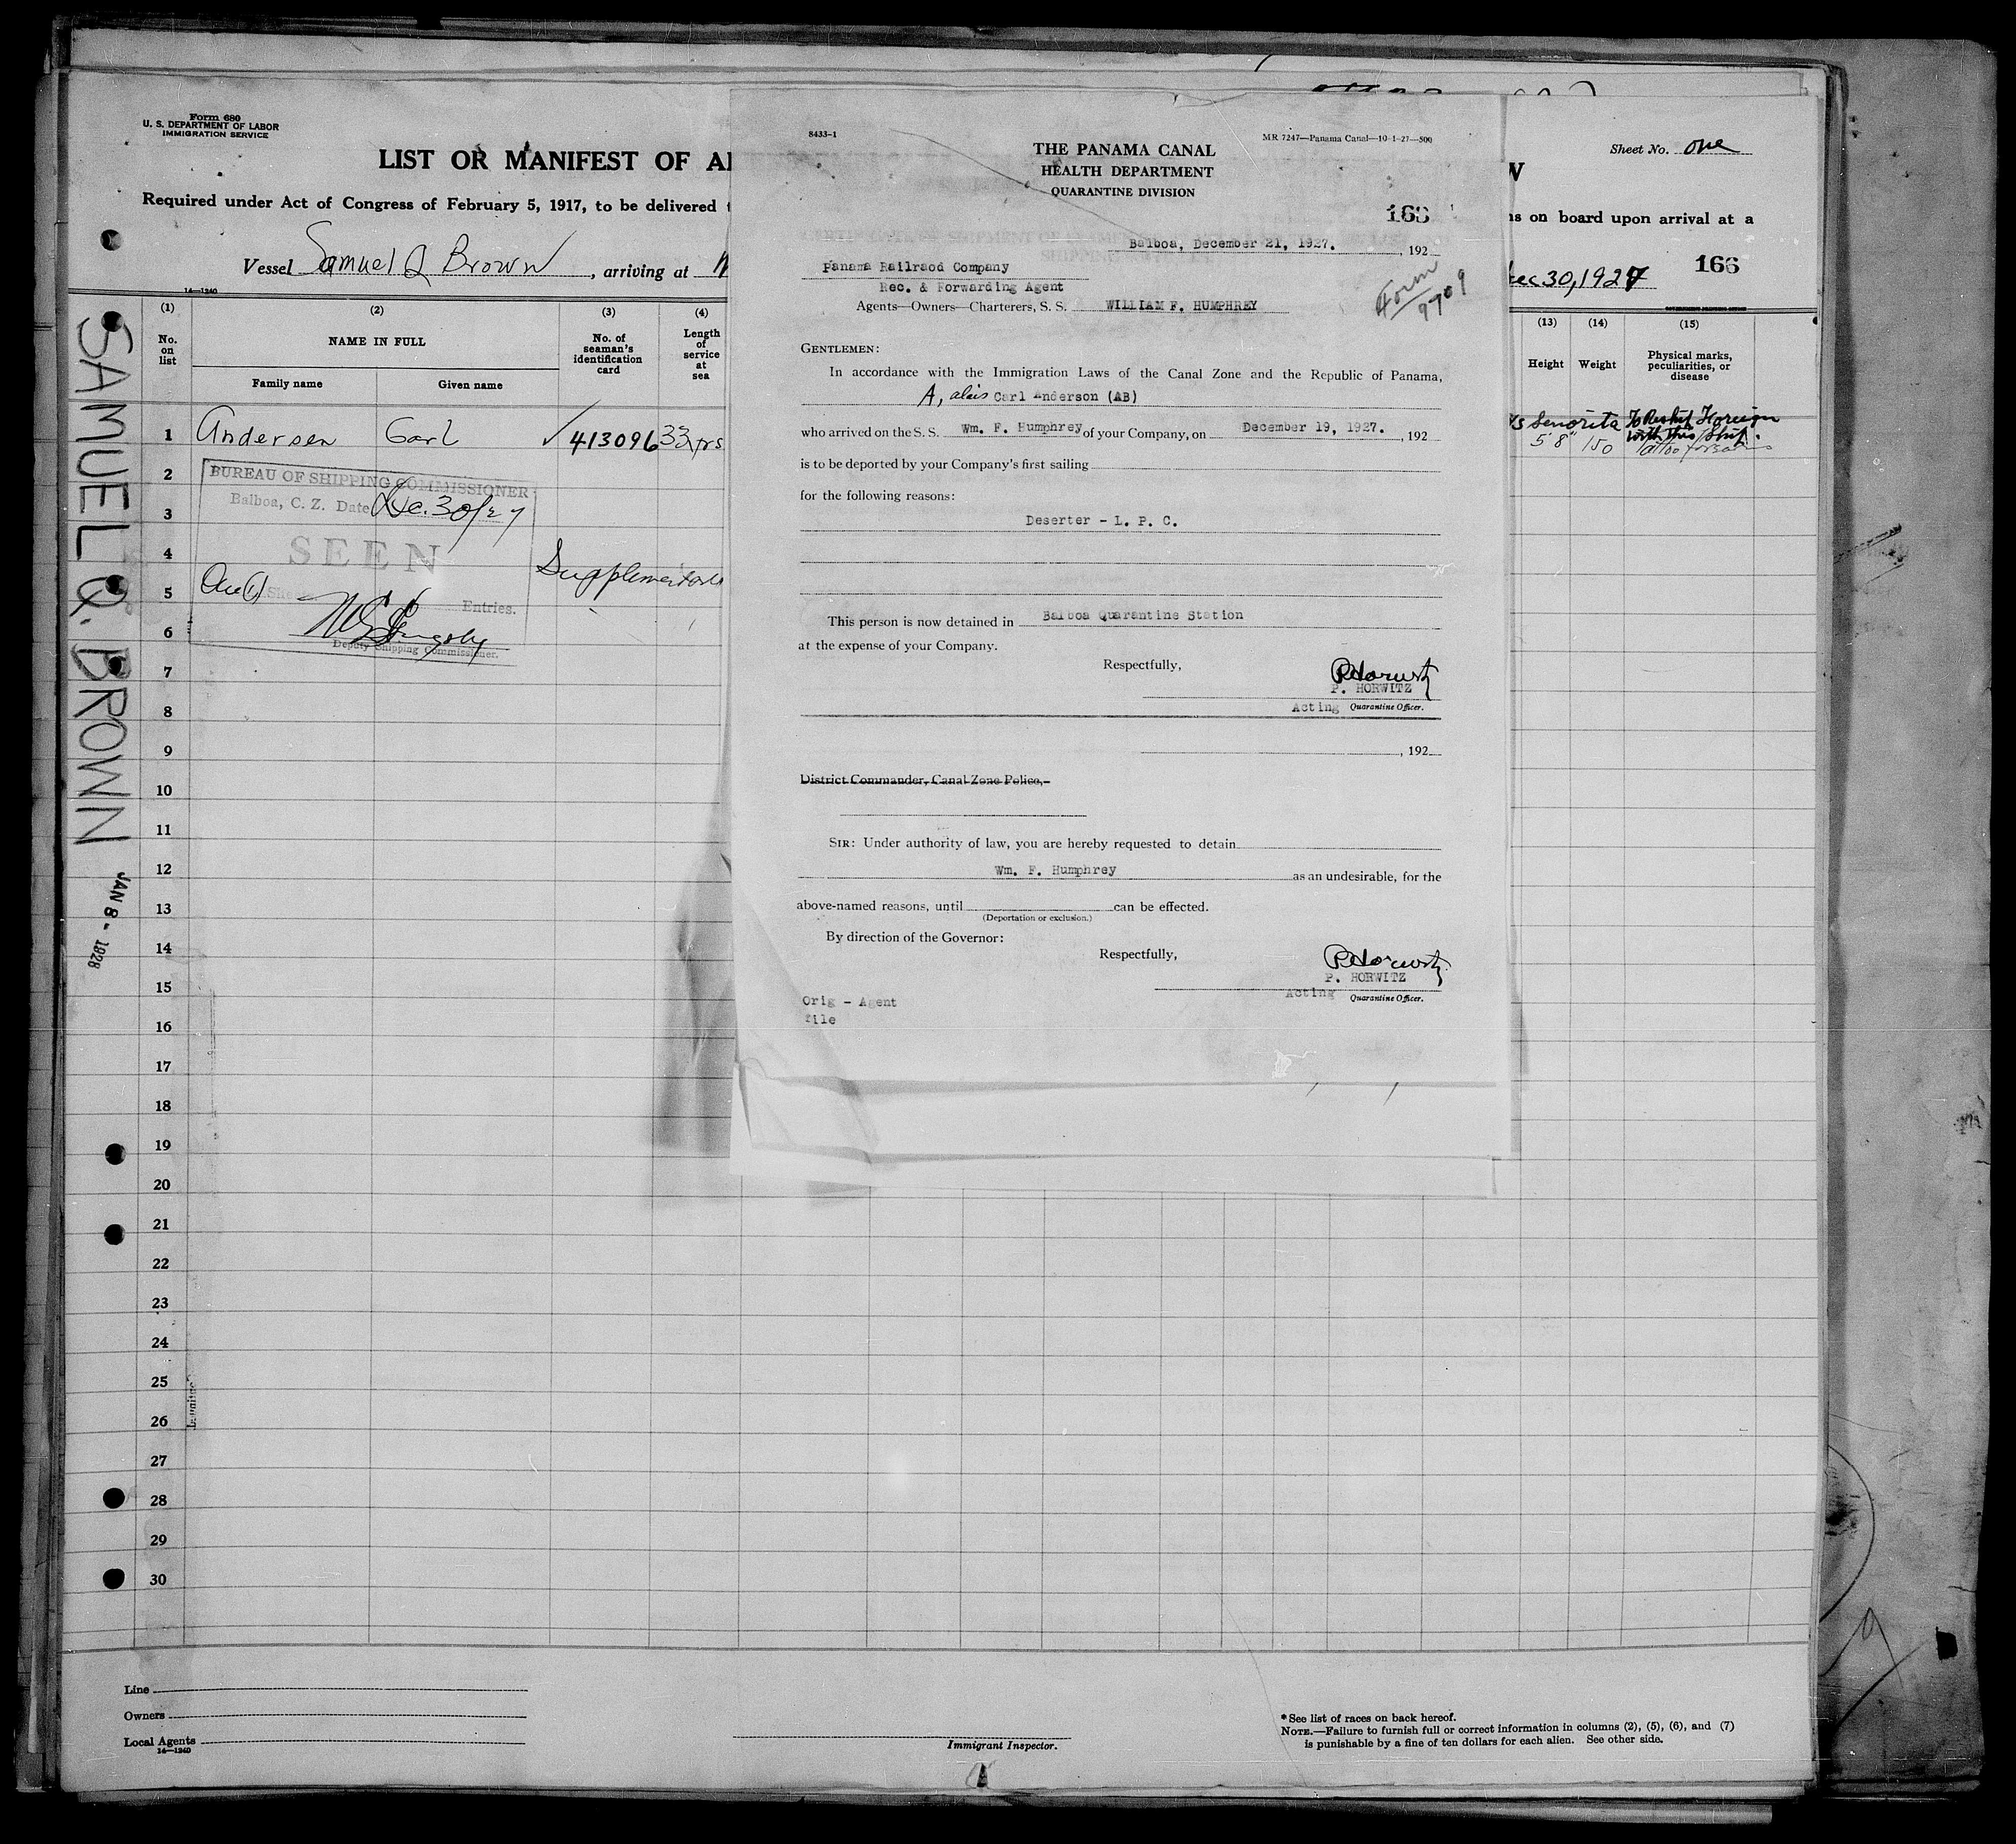 Form 680
U. S. DEPARTMENT OF LABOR
IMMIGRATION SERVICE
Sheet No. one
LIST OR MANIFEST OF AL
Required under Act of Congress of February 5, 1917, to be delivered t
ns on board upon arrival at a
Vessel Samuel Q Brown, arriving at
Dec 30, 1927
166
14—1240
(1)
No. on list
(2)
NAME IN FULL
Family name
Given name
(3)
No. of seaman's identification card
(4)
Length of service at sea
(13)
Height
(14)
Weight
(15)
Physical marks, peculiarities, or disease
1 Andersen Carl ✓ 413096 33 yrs
SS Senorita To Reship Foreign
with this Ship.
5'8" 150 Tattoo
BUREAU OF SHIPPING COMMISSIONER
Balboa, C. Z. Date Dec. 30/27
SEEN
One (1) Entries.
Supplementary
Deputy Shipping Commissioner.
2
3
4
5
6
7
8
9
10
11
12
13
14
15
16
17
18
19
20
21
22
23
24
25
26
27
28
29
30
SAMUEL Q. BROWN
JAN 8 - 1928
8433-1
MR 7247—Panama Canal—10-1-27—500
THE PANAMA CANAL
HEALTH DEPARTMENT
QUARANTINE DIVISION
166
Balboa, December 21, 1927. , 192
Panama Railraod Company
Rec. & Forwarding Agent
Agents—Owners—Charterers, S. S. WILLIAM F. HUMPHREY
Form
9709
GENTLEMEN:
In accordance with the Immigration Laws of the Canal Zone and the Republic of Panama,
A, alais Carl Anderson (AB)
who arrived on the S. S. Wm. F. Humphrey of your Company, on December 19, 1927. , 192
is to be deported by your Company's first sailing
for the following reasons:
Deserter - L. P. C.
This person is now detained in Balboa Quarantine Station
at the expense of your Company.
Respectfully,
P Horwitz
P. HORWITZ
Acting Quarantine Officer.
, 192
District Commander, Canal Zone Police,
SIR: Under authority of law, you are hereby requested to detain
Wm. F. Humphrey as an undesirable, for the
above-named reasons, until can be effected.
(Deportation or exclusion.)
By direction of the Governor:
Respectfully,
P Horwitz
P. HORWITZ
Acting Quarantine Officer.
Orig - Agent
file
Line
Owners
Local Agents
14—1240
Immigrant Inspector.
*See list of races on back hereof.
NOTE.—Failure to furnish full or correct information in columns (2), (5), (6), and (7)
is punishable by a fine of ten dollars for each alien. See other side.